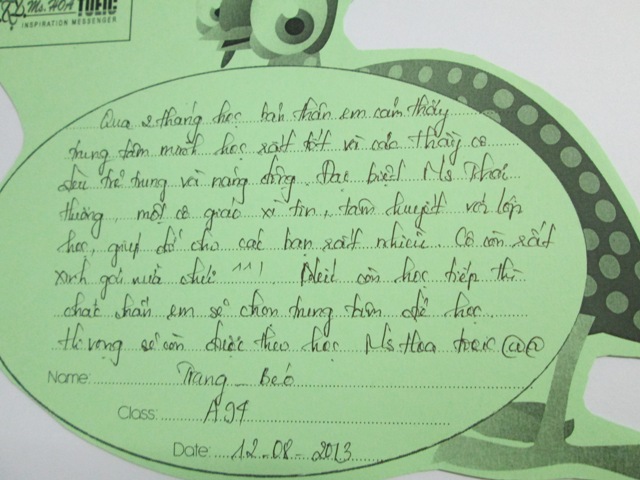 Ms. HOA TOEIC
INSPIRATION MESSENGER
Qua 2 tháng học bản thân em cảm thấy
trung tâm mình học rất tốt và các thầy cô
đều trẻ trung và năng động. Đặc biệt Ms
thường, một cô giáo xì tin, tâm huyết với lớp
học, giúp đỡ cho các bạn rất nhiều. Cô còn rất
xinh gái nữa chứ ^^! Nếu còn học tiếp thì
chắc chắn em sẽ chọn trung tâm để học.
Hi vọng sẽ còn được theo học Ms Hoa toeic @@
Name: Trang _ Béo
Class: A94
Date: 12-08-2013